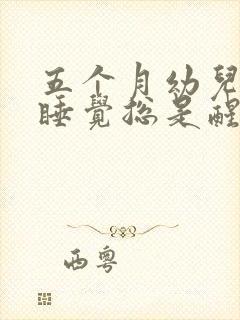 五个月幼兒
睡覺总是醒
西粤